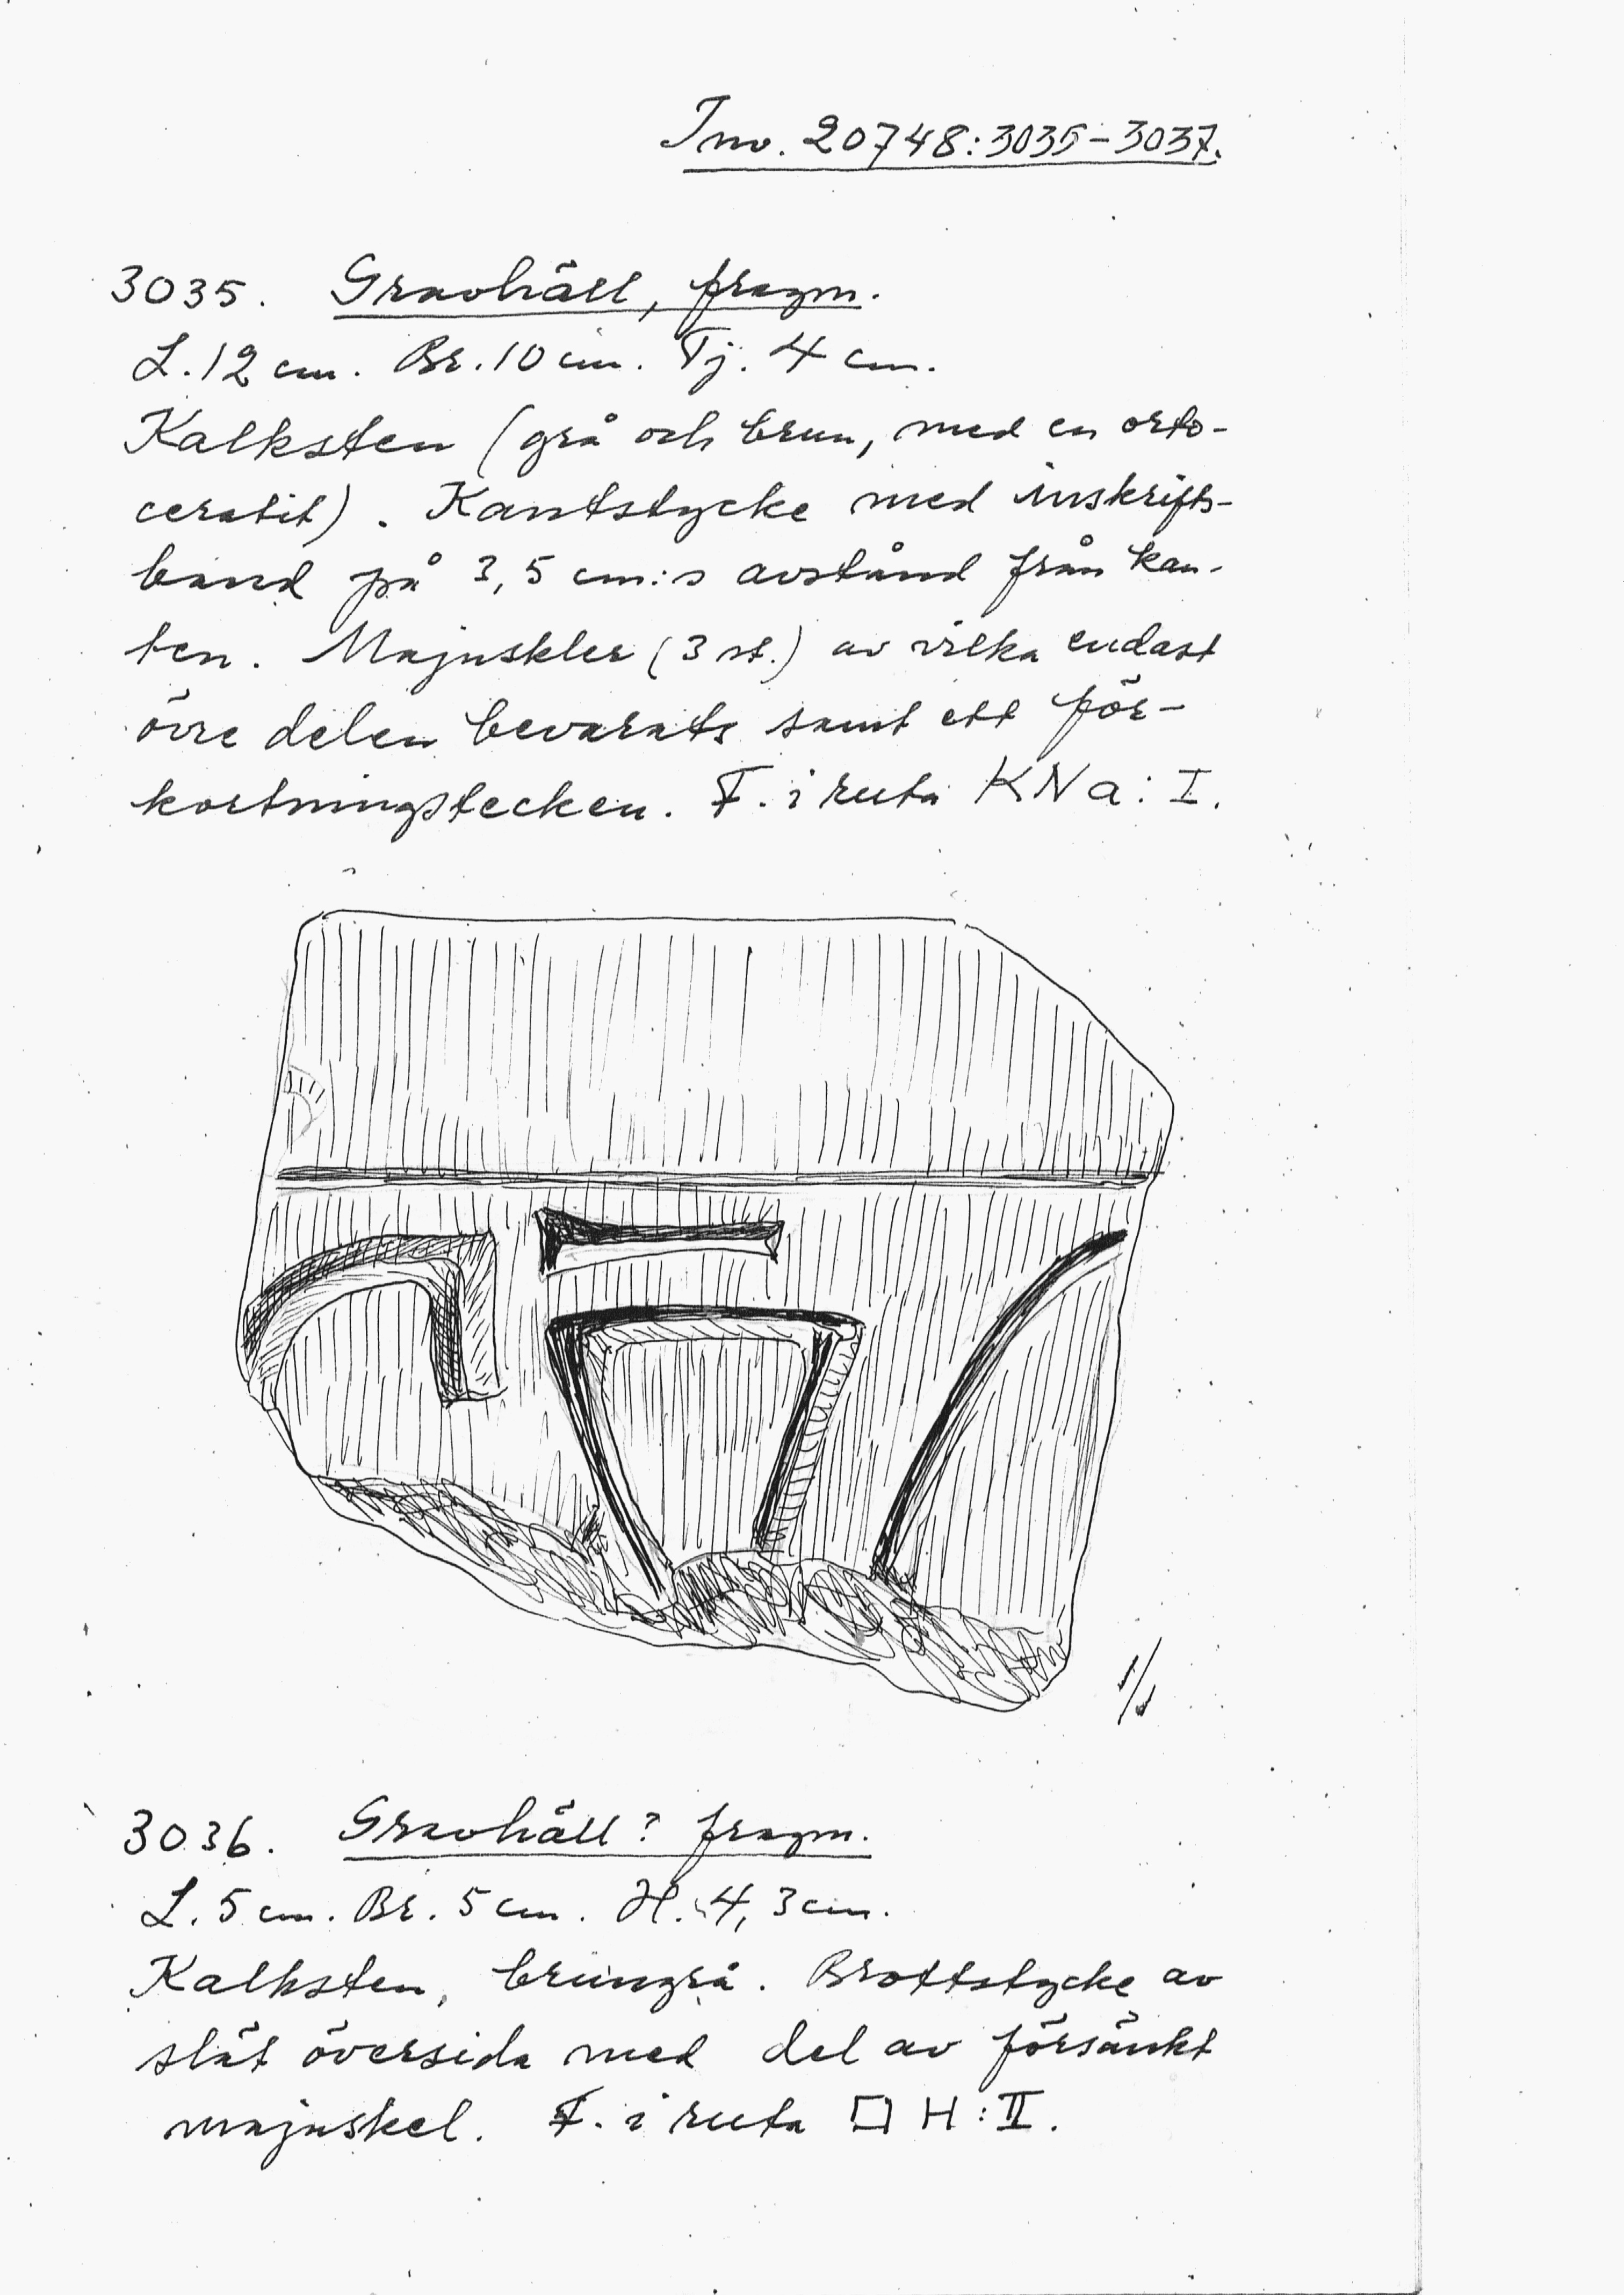 Inv. 20748:3035-3037.
3035. Gravhäll, fragm.
L. 12 cm. Br. 10 cm. Tj. 4 cm.
Kalksten (grå och brun, med en orto-
ceratit). Kantstycke med inskrifts-
band på 3,5 cm:s avstånd från kan-
ten. Majuskler (3 st.) av vilka endast
övre delen bevarats samt ett för-
kortningstecken. F. i ruta KNa: I.
1/1
3036. Gravhäll? fragm.
L. 5 cm. Br. 5 cm. H. 4,3 cm.
Kalksten, brungrå. Brottstycke av
slät översida med del av försänkt
majuskel. F. i ruta □ H: II.